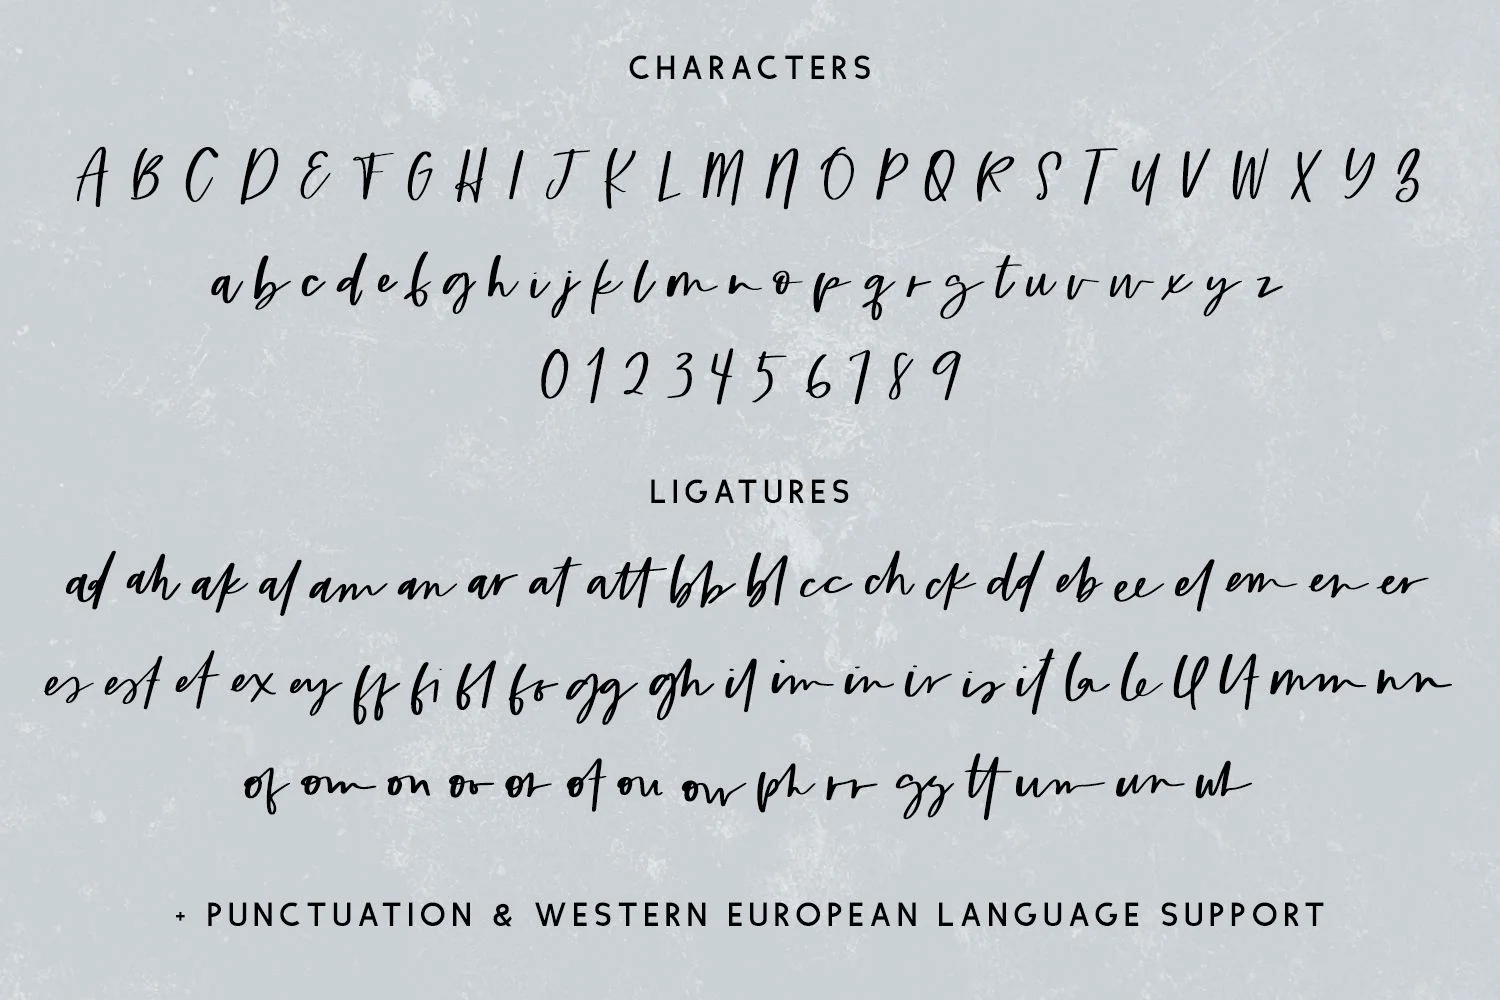 CHARACTERS
A B C D E F G H I J K L M N O P Q R S T U V W X Y Z
a b c d e f g h i j k l m n o p q r s t u v w x y z
0 1 2 3 4 5 6 7 8 9
LIGATURES
ad ah ak al am an ar at att bb bl cc ch ck dd eb ee el em en er
es est et ex ey ff fi fl fo gg gh il im in ir is it la le ll lt mm nn
of om on oo or ot ou ow ph rr ss tt um un wh
+ PUNCTUATION & WESTERN EUROPEAN LANGUAGE SUPPORT